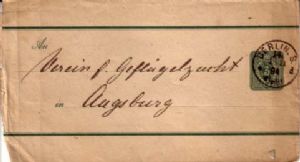 An
Verein f. Geflügelzucht
in
Augsburg
BERLIN. S